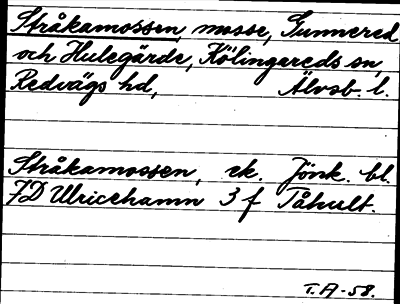 Stråkamossen, mosse, Gunnered
och Hulegärde, Kölingareds sn,
Redvägs hd, Älvsb. l.
Stråkamossen, ek. Jönk. bl.
7D Ulricehamn 3 f Tåhult.
T.A-58.